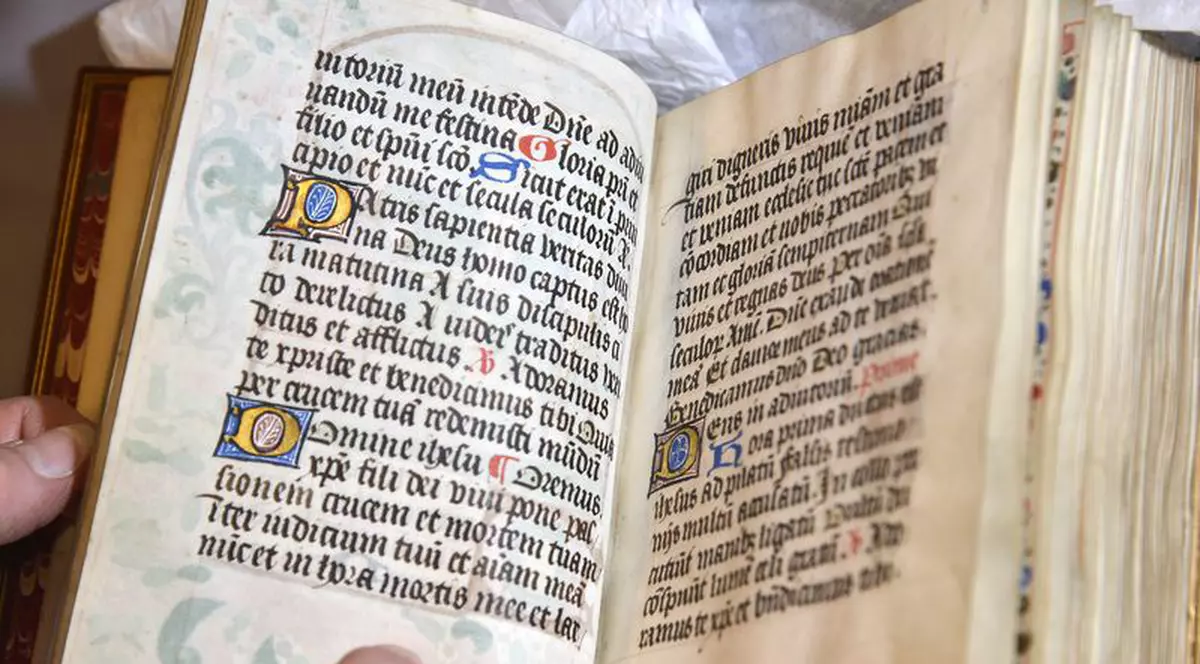 iutoriū meū intēde Dn̄e ad adiu
uandū me festina Gloria pr̄i et
filio et spūi scō. Sicut erat ī prin
cipio et nūc et secula seculorū A.
PAtris sapientia veritas diui
na Deus homo captus est ho
ra matutina A suis discipulis ci
to derelictus A iudeis traditus ven
ditus et afflictus ℣ Adoramus
te xpriste et benedicimus tibi Quia
per crucem tuā redemisti mūdū
DOmine ihesu ¶ Oremus
xpe fili dei viui pone pas
sionem crucem et mortem tuam
īter iudicium tuū et aīam meā
nūc et in hora mortis mee et lar
giri digneris viuis miām et gra
tiam defunctis requiē et veniam
et veniam ecclesie tue scē pacem et
cōcordiam et nobis peccatoribz vi
tam et gloriā sempiternam Qui
viuis et regnas deus Per oīa scl̄a
seculoꝝ Amē. Dn̄e exaudi oratione
meā Et clamor meus ad te veniat.
Benedicamus dn̄o Deo gracias.
DEus in adiutoriū. Prime
Hora prima ductus est
ihesus Ad pilatū falsis testimo
nijs multū acusatū. In collo per
cutiūt manibz ligatū Vultū dei
cōspuūt lumē celi gratū ℣ Ado
ramus te xpe et bn̄dicimus tibi.